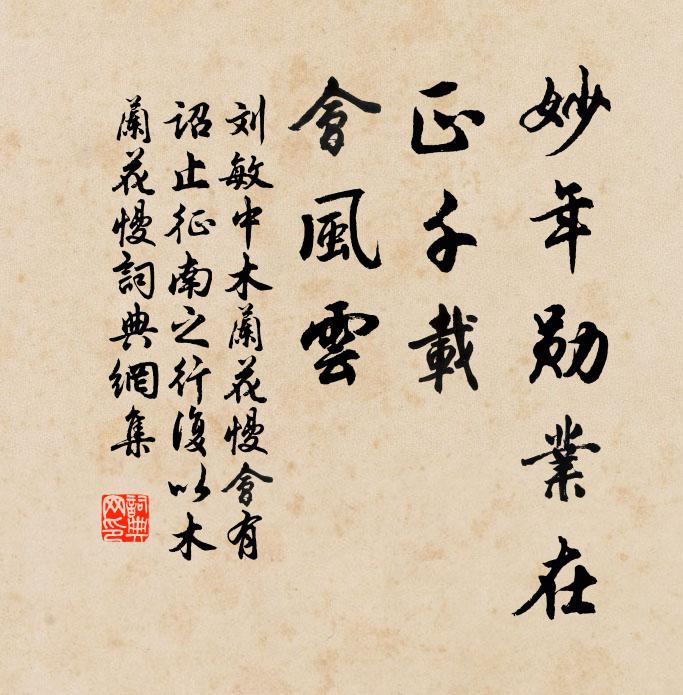 妙年勋業在
正千載
會風雲
刘敏中木蘭花慢會有
詔止征南之行復以木
蘭花慢詞典網集
詞典
网印